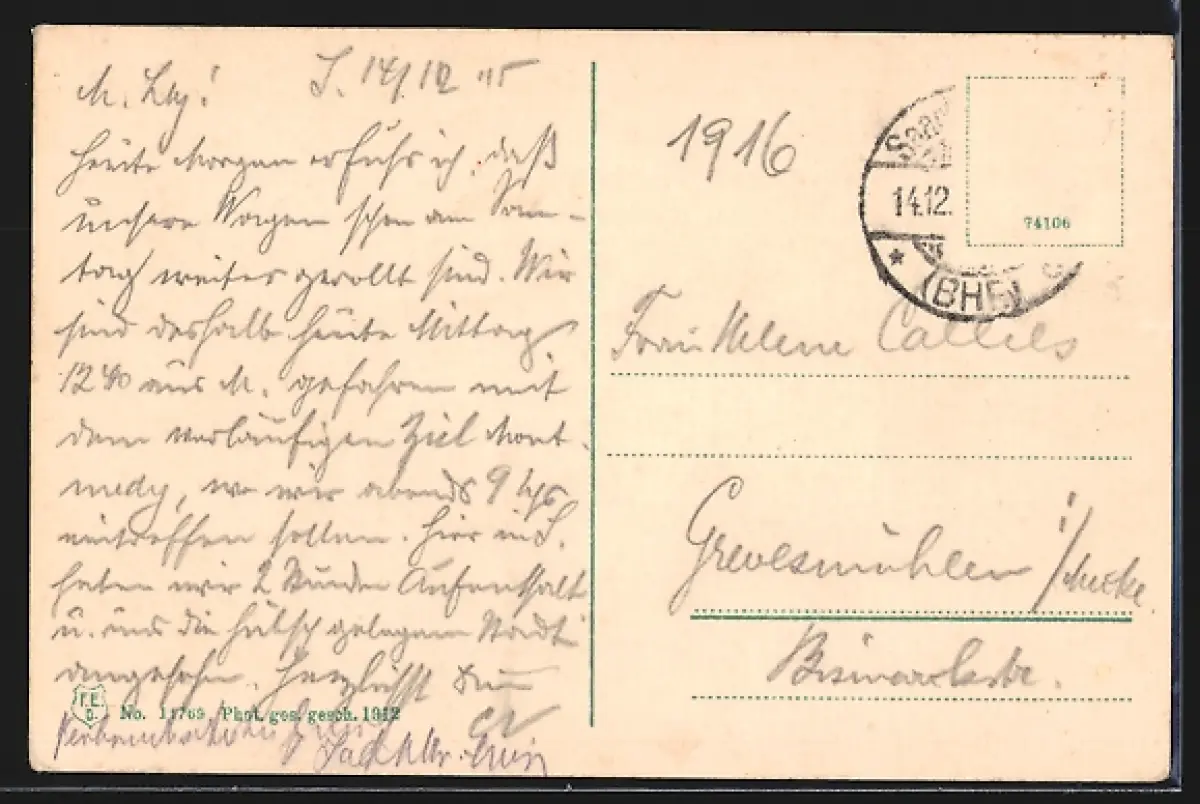 S. 14/12 15
M. Lbg!
heute Morgen erfuhr ich, daß
unsere Wagen schon am Sonn-
tag weiter gerollt sind. Wir
sind deshalb heute Mittag
12 40 aus M. gefahren mit
dem vorläufigen Ziel Mont-
medy, wo wir abends 9 Uhr
eintreffen sollen. Hier in S.
haben wir 2 Stunden Aufenthalt
u. uns die hübsch gelegene Stadt
angesehn. Herzlichst Dein
F.E.D.
No. 11769 Phot. ges. gesch. 1912
1916
Saar
14.12.
(BHF)
74106
Frau Helene Callies
Grevesmühlen i/Meckl.
Bismarckstr.